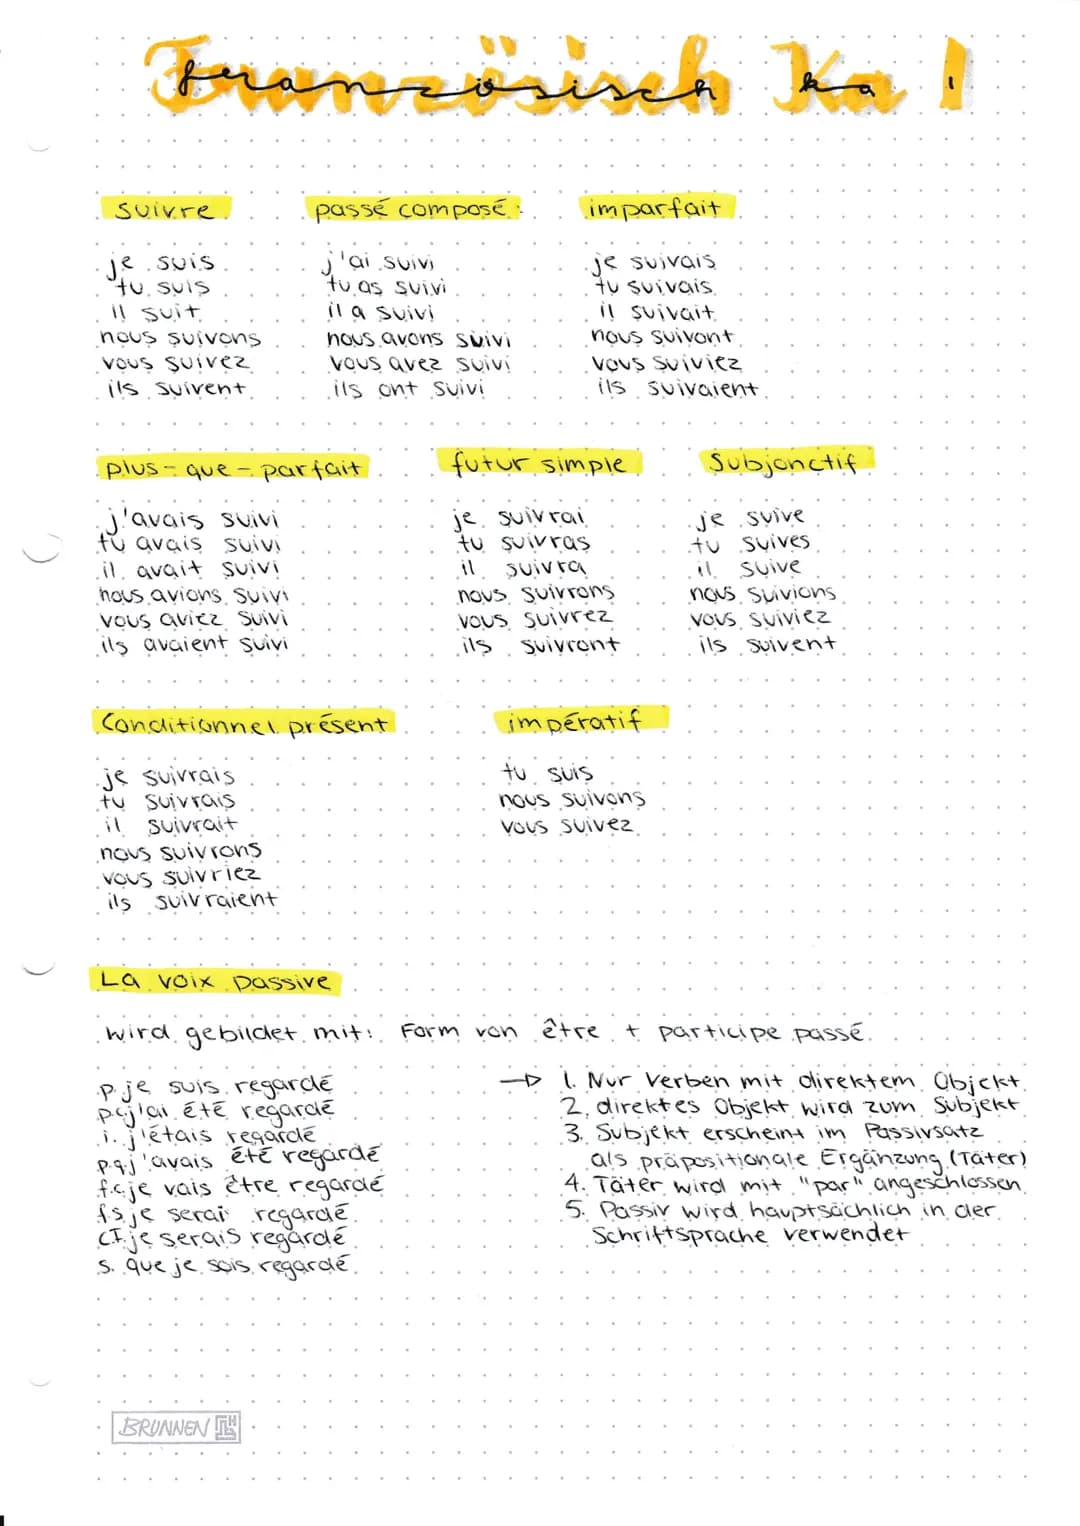 Französisch Ka 1
suivre
je suis
tu suis
il suit
nous suivons
vous suivez
ils suivent
passé composé:
j'ai suivi
tu as suivi
il a suivi
nous avons suivi
vous avez suivi
ils ont suivi
imparfait
je suivais
tu suivais
il suivait
nous suivont
vous suiviez
ils suivaient
plus-que-parfait
j'avais suivi
tu avais suivi
il avait suivi
nous avions suivi
vous aviez suivi
ils avaient suivi
futur simple
je suivrai
tu suivras
il suivra
nous suivrons
vous suivrez
ils suivront
Subjonctif
je suive
tu suives
il suive
nous suivions
vous suiviez
ils suivent
Conditionnel présent
je suivrais
tu suivrais
il suivrait
nous suivrons
vous suivriez
ils suivraient
impératif
tu suis
nous suivons
vous suivez
La voix passive
wird gebildet mit: Form von être + participe passé
p je suis regardé
pcj'ai été regardé
i. j'étais regardé
p.q.j'avais été regardé
f.c je vais être regardé
fs je serai regardé
CI je serais regardé
s. que je sois regardé
→ 1. Nur Verben mit direktem Objekt
2. direktes Objekt wird zum Subjekt
3. Subjekt erscheint im Passivsatz
als präpositionale Ergänzung (Täter)
4. Täter wird mit "par" angeschlossen
5. Passiv wird hauptsächlich in der
Schriftsprache verwendet
BRUNNEN